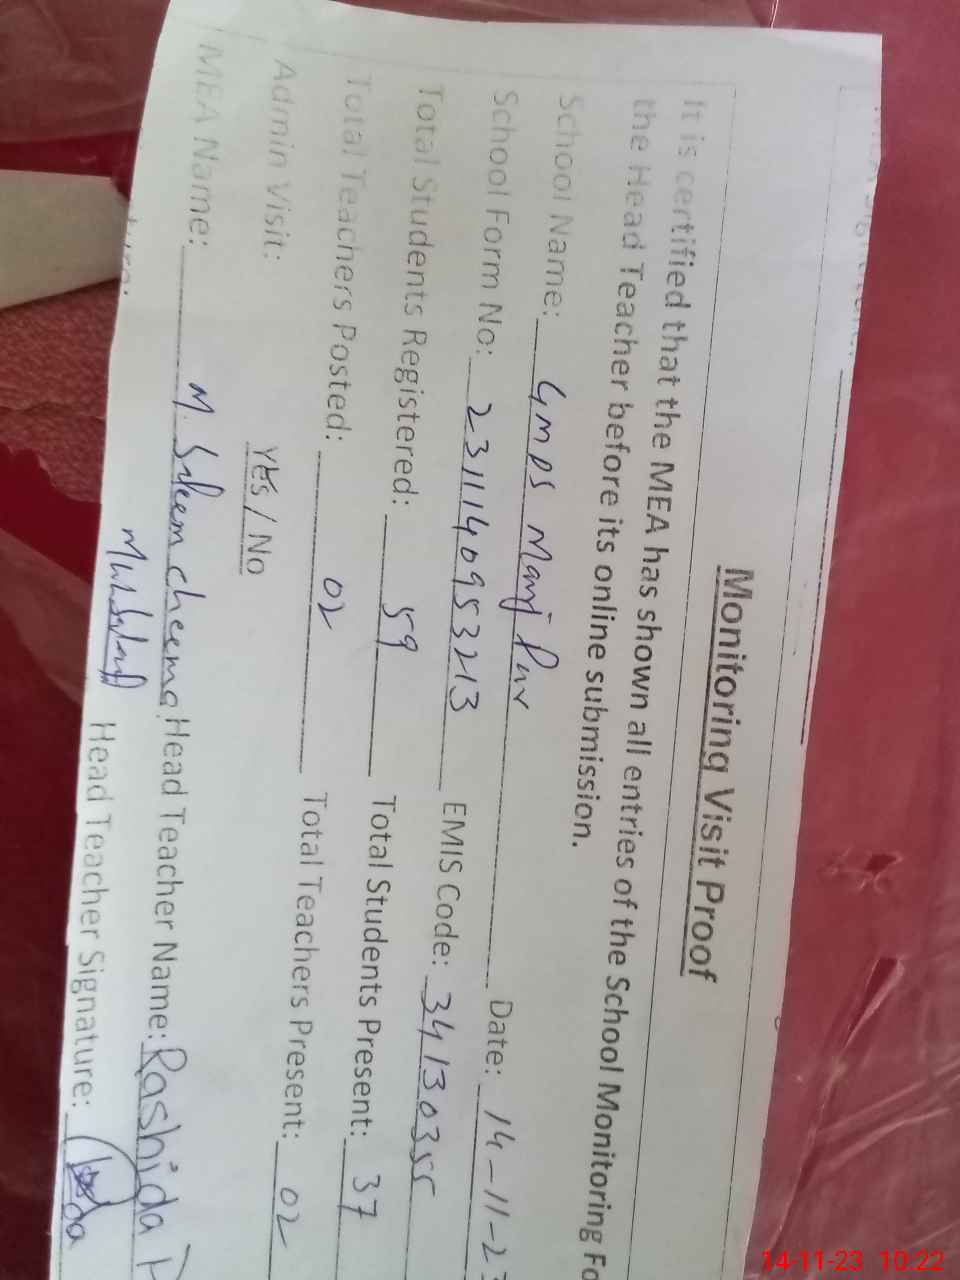 Monitoring Visit Proof
It is certified that the MEA has shown all entries of the School Monitoring Fo
the Head Teacher before its online submission.
School Name: GMPS Manj Pur Date: 14-11-23
School Form No: 2311140953213 EMIS Code: 34130355
Total Students Registered: 59 Total Students Present: 37
Total Teachers Posted: 02 Total Teachers Present: 02
Admin Visit: Yes / No
MEA Name: M. Saleem cheema Head Teacher Name: Rashida
Head Teacher Signature:
14-11-23 10:22